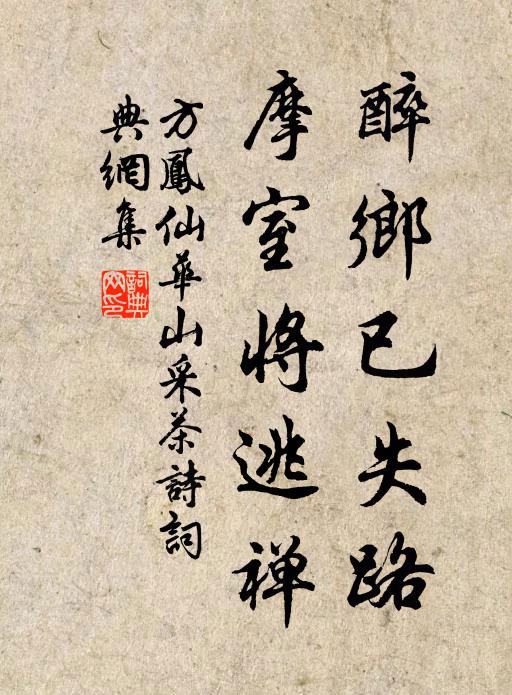 醉鄉已失路
摩室將逃禅
方鳳仙華山采茶詩詞
典網集
詞典网印